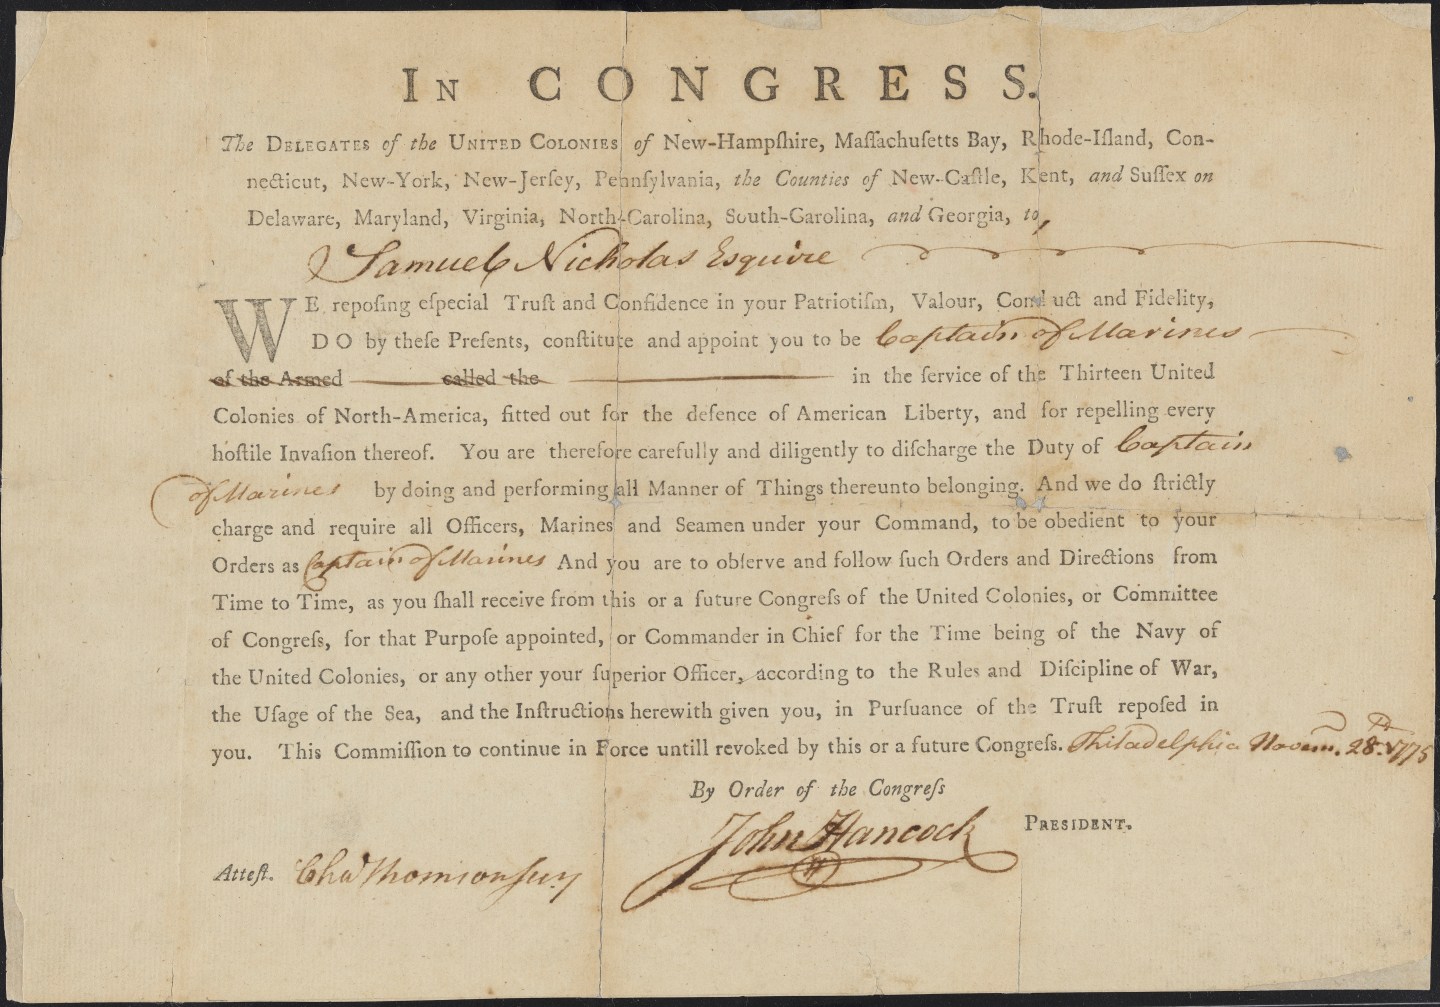 In CONGRESS.
The DELEGATES of the UNITED COLONIES of New-Hampſhire, Maſſachuſetts Bay, Rhode-Iſland, Con-
necticut, New-York, New-Jerſey, Pennſylvania, the Counties of New-Caſtle, Kent, and Suſſex on
Delaware, Maryland, Virginia, North-Carolina, South-Carolina, and Georgia, to,
Samuel Nicholas Esquire
WE repoſing eſpecial Truſt and Confidence in your Patriotiſm, Valour, Conduct and Fidelity,
DO by theſe Preſents, conſtitute and appoint you to be Captain of Marines
of the Armed called the in the ſervice of the Thirteen United
Colonies of North-America, fitted out for the defence of American Liberty, and for repelling every
hoſtile Invaſion thereof. You are therefore carefully and diligently to diſcharge the Duty of Captain
of Marines by doing and performing all Manner of Things thereunto belonging. And we do ſtrictly
charge and require all Officers, Marines and Seamen under your Command, to be obedient to your
Orders as Captain of Marines And you are to obſerve and follow ſuch Orders and Directions from
Time to Time, as you ſhall receive from this or a future Congreſs of the United Colonies, or Committee
of Congreſs, for that Purpoſe appointed, or Commander in Chief for the Time being of the Navy of
the United Colonies, or any other your ſuperior Officer, according to the Rules and Diſcipline of War,
the Uſage of the Sea, and the Inſtructions herewith given you, in Purſuance of the Truſt repoſed in
you. This Commiſſion to continue in Force untill revoked by this or a future Congreſs. Philadelphia Novem. 28th. 1775
By Order of the Congreſs
John Hancock PRESIDENT.
Atteſt. Cha Thomson ſecy